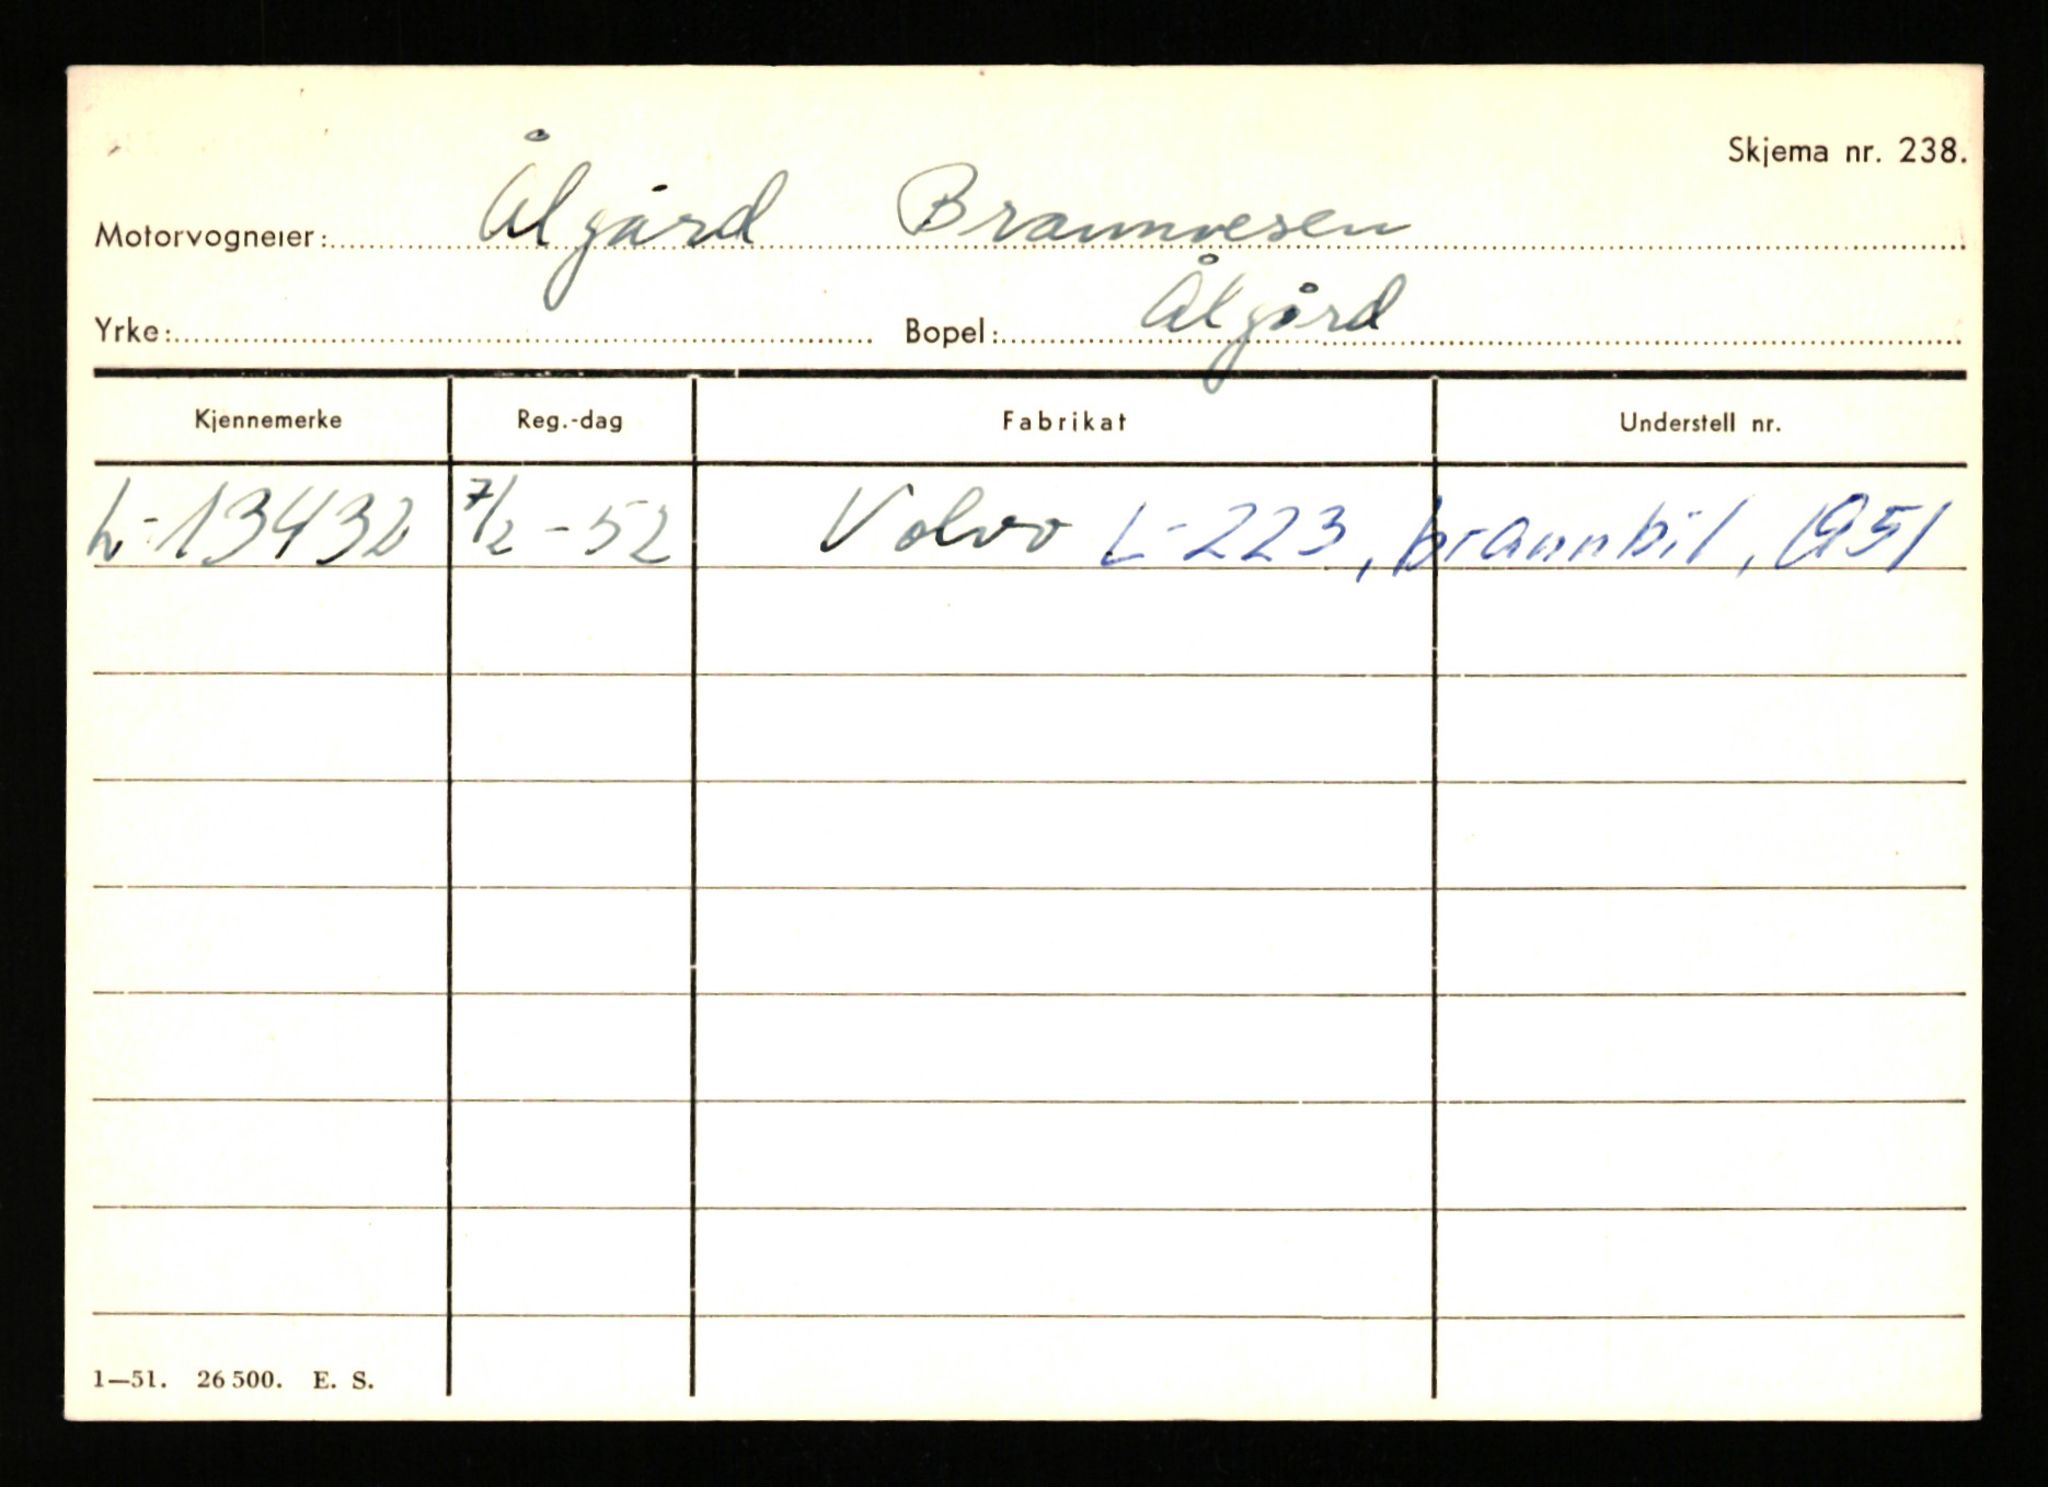 Skjema nr. 238.
Motorvogneier: Ålgård Brannvesen
Yrke: Bopel: Ålgård
Kjennemerke Reg.-dag Fabrikat Understell nr.
L-13432 7/2-52 Volvo L-223, brannbil, 1951
1—51. 26 500. E. S.